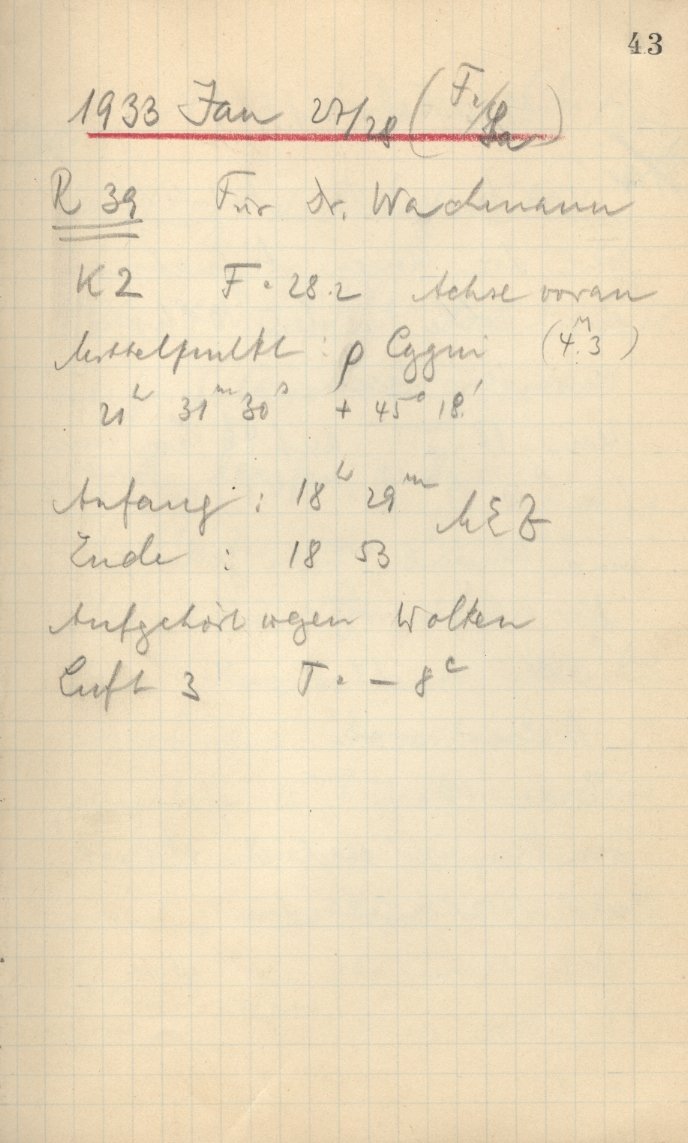 43
1933 Jan 27/28 (Fr/Sa)
R 39 Für Dr. Wachmann
K2 F = 28.2 Achse voran
Mittelpunkt : ρ Cygni (4.ᵐ3)
21ʰ 31ᵐ 30ˢ + 45° 18.'
Anfang : 18ʰ 29ᵐ MEZ
Ende : 18 53
Aufgehört wegen Wolken
Luft 3 T = – 8ᶜ